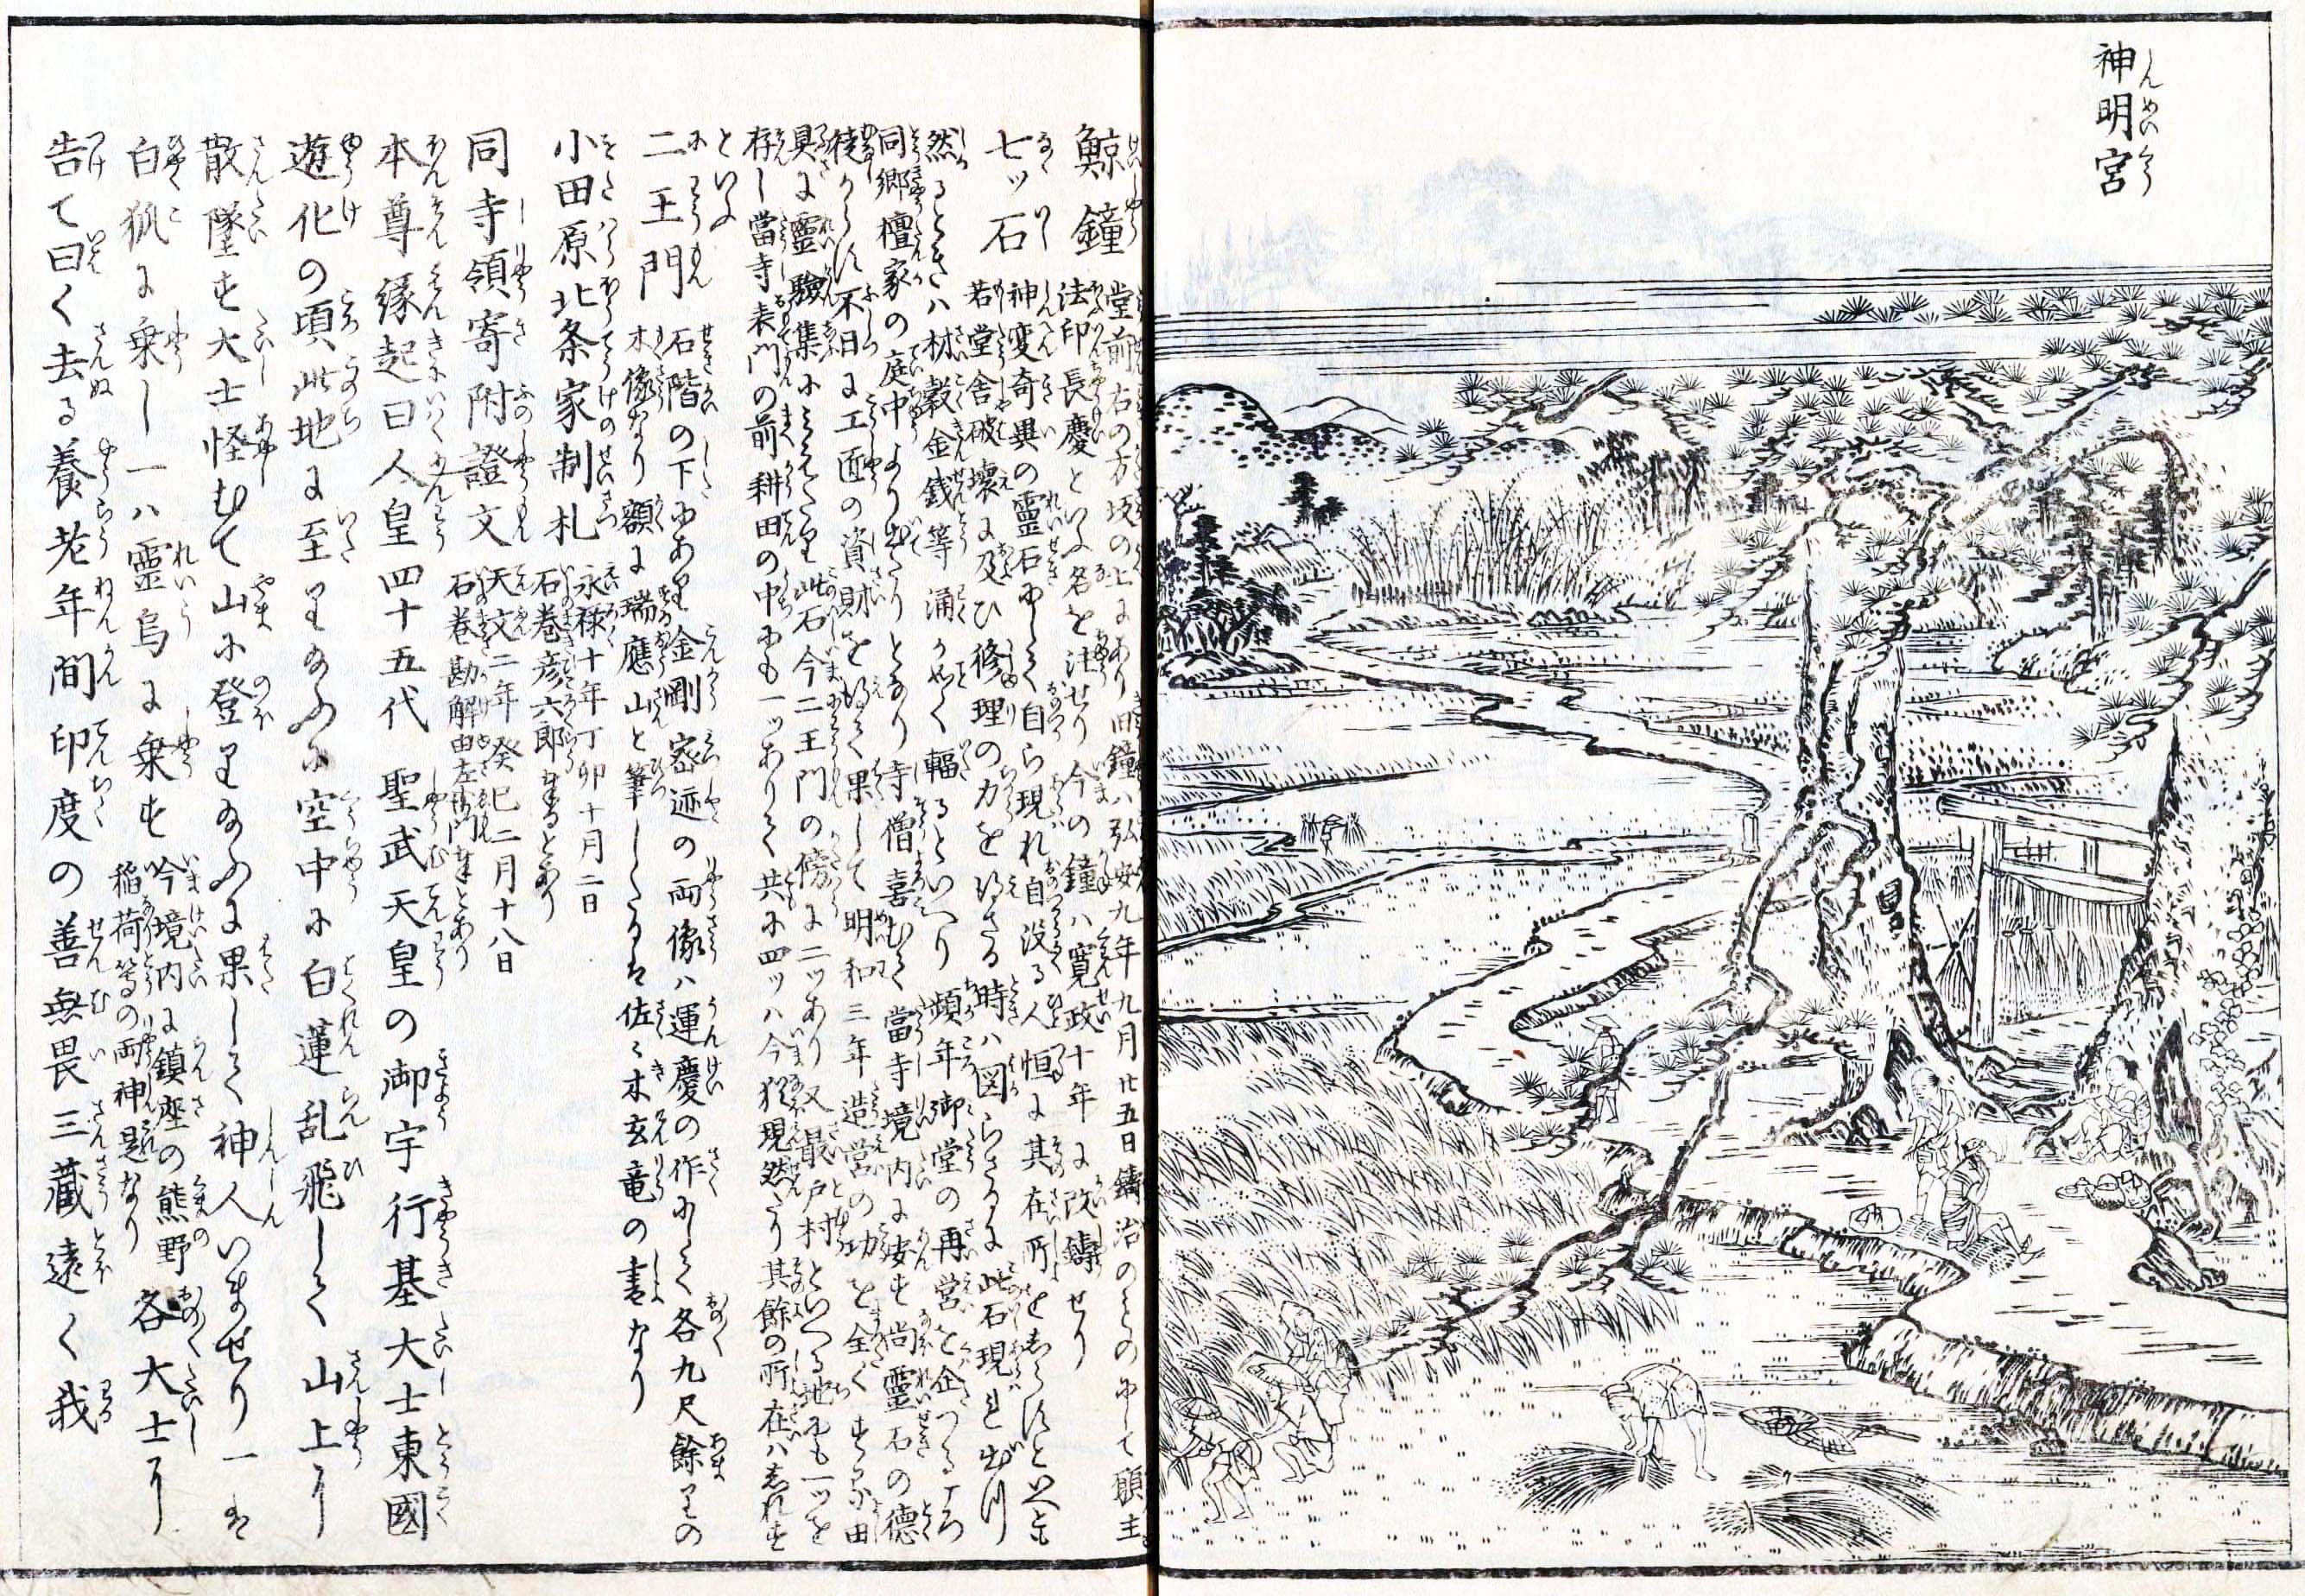 神明宮
鯨鐘 堂前右の方坂の上にあり旧鐘ハ弘安九年九月廿五日鑄冶のものにして願主
法印長慶といふ名を注せり今の鐘ハ寛政十年に改鑄せり
七ッ石 神変奇異の靈石にして自ら現れ自没る人恒に其在所をしらすといへとも
若堂舎破壊に及ひ修理の力を得さる時ハ図らさるに此石現れ出つ
然るときハ材穀金銭等涌か如く輻るといへり頻年御堂の再営を企つるころ
同郷檀家の庭中より出たりとなり寺僧喜むて當寺境内に安す尚靈石の徳
徒からす不日に工匠の資財を得て果して明和三年造営の功を全くすその由
具に靈驗集にみえたり此石今二王門の傍に二ッあり又最戸村といへる地にも一ッを
存し當寺表門の前耕田の中にも一ッありて共に四ッハ今猶現然たり其餘の所在ハしれす
といふ
二王門 石階の下にあり金剛密迹の両像ハ運慶の作にして各九尺餘りの
木像なり額に瑞應山と筆したるは佐々木玄竜の書なり
小田原北条家制札 永禄十年丁卯十月二日
石巻彦六郎奉るとあり
同寺領寄附證文 天文二年癸巳二月十八日
石巻勘解由左衛門奉とあり
本尊縁起曰人皇四十五代 聖武天皇の御宇行基大士東國
遊化の頃此地に至りたまふに空中に白蓮乱飛して山上に
散墜す大士怪むて山に登りたまふに果して神人いませり一は
白狐に乗し一ハ靈烏に乗す 今境内に鎮座の熊野
稲荷等の両神是なり 各大士に
告て曰く去る養老年間印度の善無畏三藏遠く我